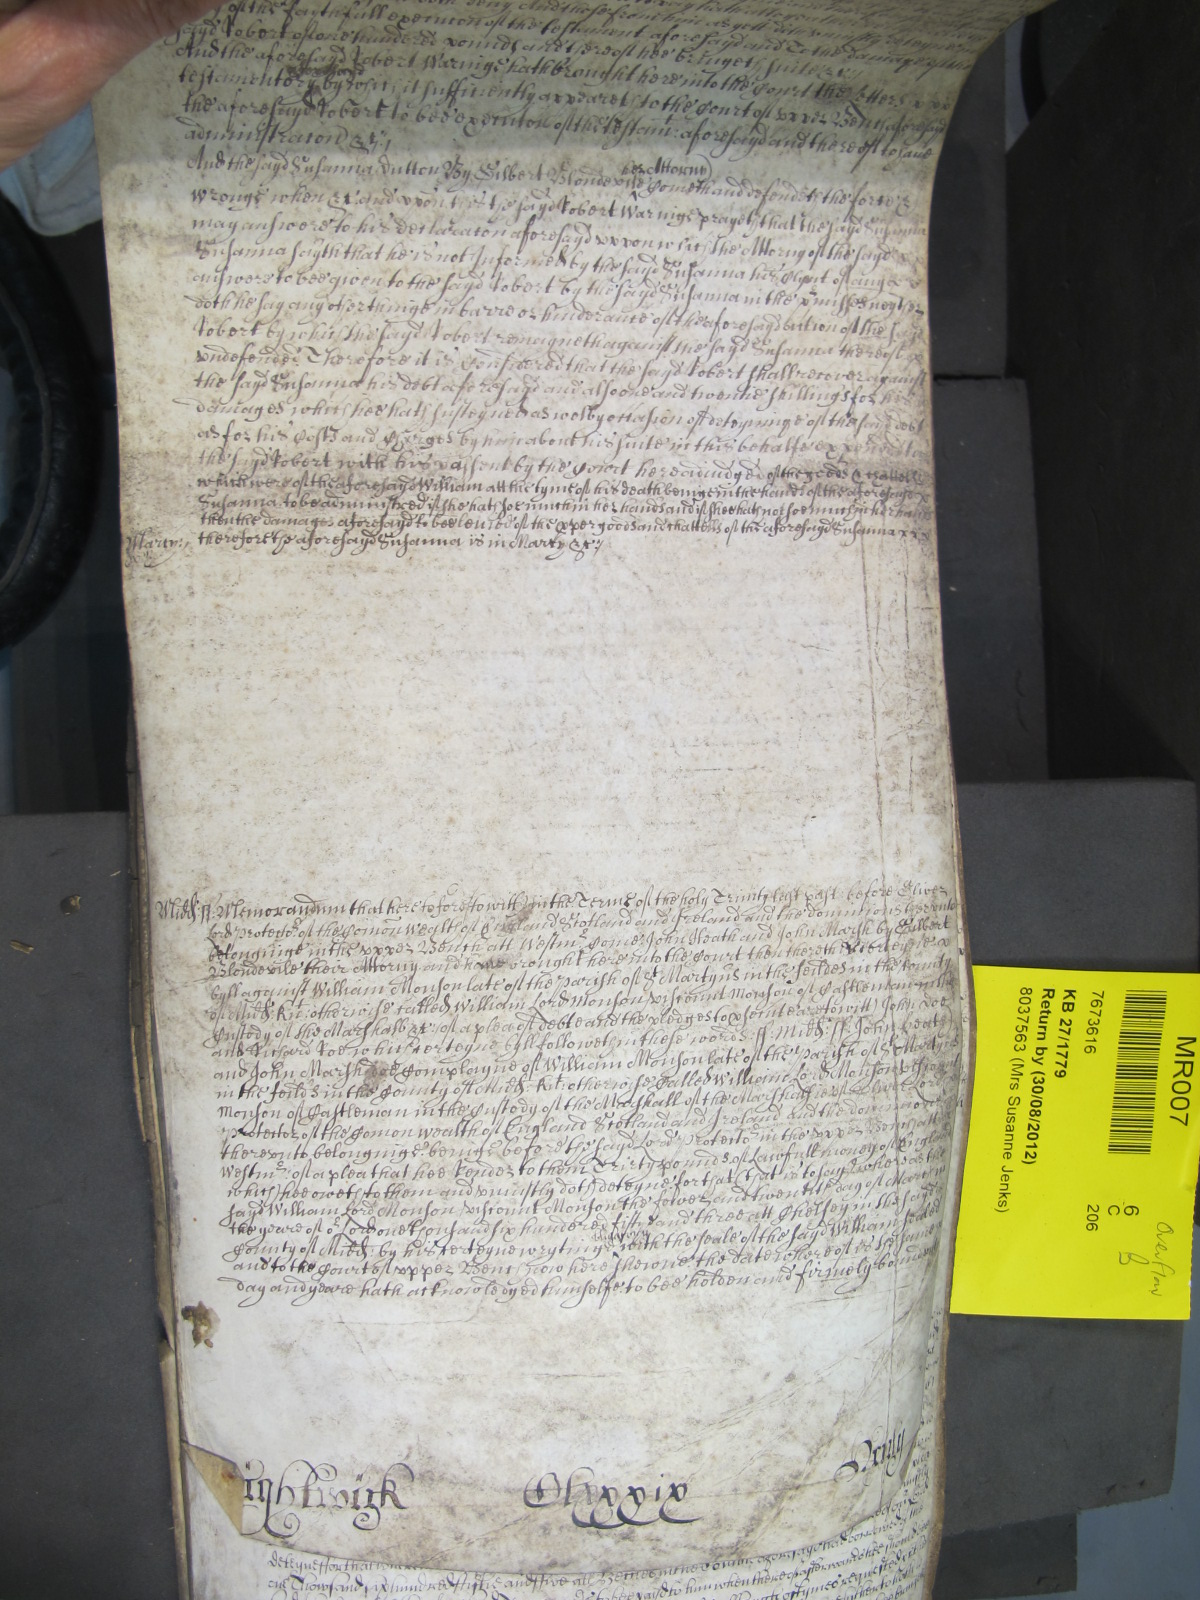 of the faythfull execucon of the testament aforesayd and To the damage of the
sayd Robert of one hundred pounds and thereof hee bringeth suite &c
And the aforesayd Robert Warnigs hath brought here into the Court the letters
testamentory by which it sufficiently appeareth to the Court of upper Bench aforesaid
the aforesayd Robert to bee executor of the testamt aforesayd and thereof to have
administracon &c
And the sayd Susanna Dutton By Gilbert Blondevile her Attorny cometh and defendeth the force &
wronge when &c and upon this the sayd Robert Warnigs prayeth that the sayd Susanna
may answere to his declaracon aforesayd uppon which the Attorny of the sayd
Susanna sayth that he is not Informed by the sayd Susanna his Clyent of any
answere to bee given to the sayd Robert by the sayd Susanna in the premisses neyther
doth he say any other thinge in barre or hinderance of the aforesayd action of the sayd
Robert by which the sayd Robert remayneth against the sayd Susanna thereof
undefended Therefore it is Considered that the sayd Robert shall recover against
the sayd Susanna his debt aforesayd and alsoe one and twentie shillings for his
damages which hee hath susteyned as well by occasion of deteyninge of the sayd debt
as for his Costs and Charges by him about his suite in this behalfe expended to
the sayd Robert with his assent by the Court here adjudged of the goods & chattells
which were of the aforesayd William att the tyme of his death beinge in the hands of the aforesayd
Susanna to be administred if she hath soe much in her hands and if shee hath not soe much in her hands
then the damages aforesayd to bee levied of the proper goods and chattells of the aforesayd Susanna
Marcy therefore the aforesayd Susanna is in Marcy &c
Midd ss Memorandum that heretofore to witt in the Terme of the holy Trinity last past before Oliver
lord Protector of the Comon wealth of England Scotland and Ireland and the dominions thereunto
belonginge in the upper Bench att Westmr Comes John Heath and John Marsh by Gilbert
Blondevile their Attorny and have brought here into the Court then there their certeyne
byll against William Monson late of the parish of St Martyns in the feildes in the County
of Midd Kt otherwise called William Lord Monson viscount Monson of Castleman in the
Custody of the Marshall &c of a plea of debt and the pledges to prosecute are to witt John Doe
and Richard Roe which certeyne byll followeth in these words ss Midd ss John Heath
and John Marsh doe Complayne of William Monson late of the parish of St Martyns
in the feilds in the County of Midd Kt otherwise Called William Lord Monson viscount
Monson of Castleman in the Custody of the Marshall of the Marshalsie of Oliver Lord
Protector of the Comon wealth of England Scotland and Ireland and the dominions
thereunto belonginge beinge before the sayd Lord Protector in the upper Bench att
Westmr of a plea that hee Render to them Thirty pounds of lawfull money of England
which hee oweth to them and unjustly doth deteyne for that (that is to say) whereas the
sayd William Lord Monson viscount Monson the fower and twentith day of March in
the yeare of or Lord one thousand six hundred fifty and three att Chelsey in the sayd
County of Midd by his certeyne wrytinge with the seale of the sayd William sealed
and to the Court of upper Bench now here shewne the date whereof is the same
day and yeare hath acknowledged himselfe to bee holden and firmely bound
Clxxxix
Trinity
MR007
7673616
KB 27/1779
Return by (30/08/2012)
8037563 (Mrs Susanne Jenks)
6
C
206
Overflow